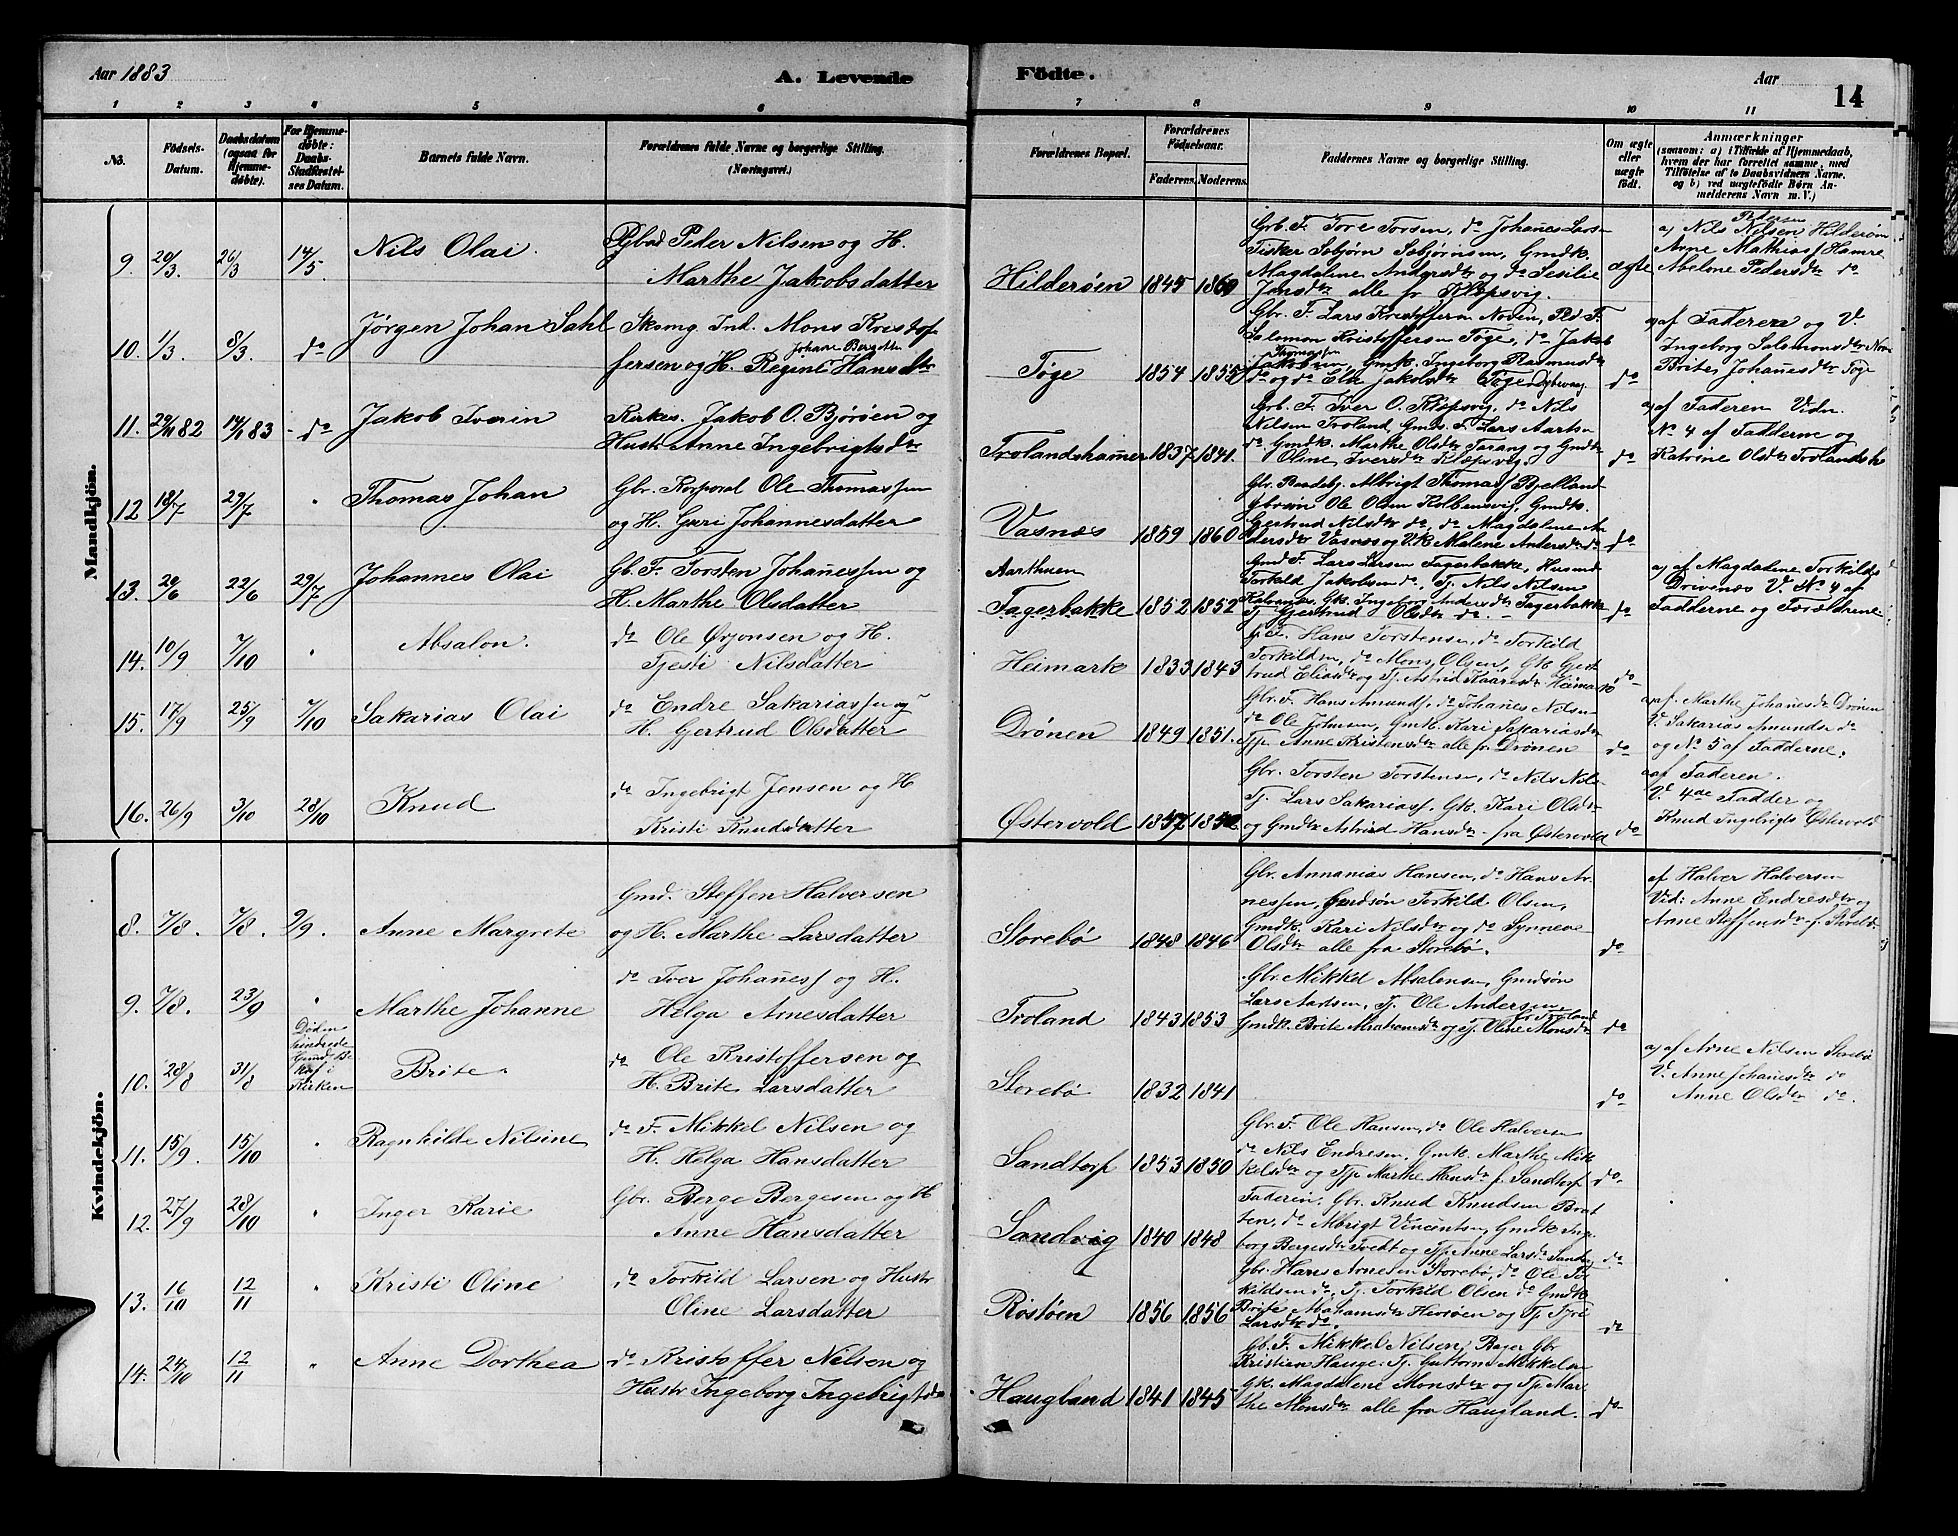 Aar 1883 A. Levende Födte. Aar 14
1 2 3 4 5 6 7 8 9 10 11
No.
Födsels-Datum.
Daabsdatum (ogsaa for Hjemmedøbte).
For Hjemmedøbte: Daabs-Stadfæstelses Datum.
Barnets fulde Navn.
Forældrenes fulde Navne og borgerlige Stilling. (Næringsvei.)
Forældrenes Bopæl.
Forældrenes Födselsaar.
Faderens. Moderens.
Faddernes Navne og borgerlige Stilling.
Om ægte eller uægte födt.
Anmærkninger
(saasom: a) i Tilfælde af Hjemmedaab, hvem der har forrettet samme, med Tilföielse af to Daabsvidners Navne. og b) ved uægtefödte Börn Anmelderens Navn m. V.)
Mandkjön.
9. 20/3. 26/3 14/5 Nils Olai.
Peder Nilsen og H.
Marthe Jakobsdatter
Hilderöen 1845 1860
Grb. F. Tore Torsen, do Johanes Lars-
Fisker Sebjörn Sebjörnsen, Gmdk.
Magdalene Andersdtr og do Sesilie
Jensdtr alle fr Klepsvig.
ægte
a) Nils Pedersen Hilderöen
Arne Mathias f Hamre
Abelone Pedersdtr do
10. 1/3. 8/3. do Jörgen Johan Sahl
Skomg. Ind. Mons Kristof-
fersen og H. Regine Johane Bergette Hansdtr
Töge 1854 1855
Gbr. F. Lars Kristoffersen Noren, Pld. F.
Salomon Kristoffersen Töge, do Jakob
Thomassen, Gmdk. Ingeborg Rasmusdtr
do og do Elk Jakobsdtr Töge
do
a) af Faderen og V.
Ingeborg Salomonsdtr
Brite Johanesdtr Töge
11. 14/1 83 - do Jakob Iverin
Kirkes. Jakob O. Björöen og
Hustr Anne Ingebrigtsdtr
Trolandshamer 1837 1841.
Grb. F. Iver O. Klepsvig, do Nils
Nilsen Troland, Gmds. F. Lars Aartsen
do Gmdk. Marthe Olsdtr Tarang og Gmdtr
Oline Iversdtr Klepsvig.
do
a) af Faderen Vidn.
No 4 af Fadderne og
Katrine Olsdtr Trolandsh
12 18/7 29/7 " Thomas Johan
Gbr. Korporal Ole Thomassen
og H. Guri Johannesdatter
Vasnæs 1859 1860
Albrigt Thomas f Bjelland
Gbrsön Ole Olsen Kolbensvig, Gmdk.
Gertrud Nilsdtr do, do Magdalene An-
dersdtr Vasnæs og Malene Andersdtr do
do
13. 20/6 22/6 29/7 Johannes Olai
Gb. F. Torsten Johannessen og
H. Marthe Olsdatter
Aarthuen
Fagerbakke 1852 1852
Gmd F. Lars Larsen Fagerbakke, Husmd
Torkild Jakobsen do. Tj. Nils Nilsen
Gk. Ingebor Andersdtr Fagerbakke
Tj Gjertrud Olsdtr do. -
do
a) af Magdalene Torkilds
Drivenæs V. No 4 af
Fadderne og Forældrene
14. 10/9 7/10 " Absalon.
do Ole Örjonsen og H.
Tjesti Nilsdatter
Heimark 1833 1843
Hans Torstensen, do Torkild
Torkildsen, do Mons Olsen, Gk Gjert
trud Eliasdtr og Tj. Astrid Kaaresdtr Heimark
do
15. 17/9 25/9 7/10 Sakarias Olai
do Endre Sakariassen og
H. Gertrud Olsdatter
Drönen 1849 1851.
Gbr. F. Hans Amundsen, do Johanes Nilsen
do Ole Johnsen, Gmk. Kari Sakariasdtr
Tjp. Anne Kristensdtr alle fr Drönen
do
a) af Marthe Johanesdtr Drönen
V. Sakarias Amunds do
og No 5 af Fadderne.
16. 26/9 3/10 28/10 Knud
do Ingebrigt Jensen og H
Kristi Knudsdatter
Östervold 1857
Gbr. Torsten Torstensen, do Nils Nils-
Tj. Lars Sakariass, Gk. Kari Olsd-
og Gmdtr Astrid Hansdtr - fra Östervold
do
a) af Faderen.
V. 4de Fadder og
Knud Ingebrigts Östervold
Kvindekjön.
8. 7/8. 7/8. 9/9. Anne Margrete
Gmd. Steffen Halversen
og H. Marthe Larsdatter
Storebö 1848 1846
Gbr. Annanias Hansen, do Hans Ar-
nessen, Gmdsön Torkild Olsen,
Gmdk. Kari Nilsdtr og do Synneve
Olsdtr alle fra Storebö.
do
af Halver Halversen
Vid: Anne Endresdtr og
Anne Steffensdtr f Storebö
9. 7/8. 23/9 " Marthe Johanne
do Iver Johaness og H.
Helga Arnesdatter
Troland 1843 1853
Gbr. Mikkel Absalonsen, Gmdsön
Lars Aartsen, Tj. Ole Andersen
Gmdk. Brite Abrahamsdtr og Tj. Oline Monsdtr fr Troland
do
10. 28/8 31/8 Döden hindrede Kirken Brite.
do Ole Kristoffersen og
H. Brite Larsdatter
Storebö 1832 1841
do
a) af Arne Nilsen Storebö
V. Anne Johanesdtr do
Anne Olsdtr do.
11. 15/9. 15/10 " Ragnhilde Nilsine
do F. Mikkel Nilsen og
H. Helga Hansdatter
Sandtorp 1853 1850
Gbr. F. Ole Hansen, do Ole Halversen
do Nils Endresen, Gmk. Marthe Mik-
kelsdtr og Tjp. Marthe Hansdtr f. Sandtorp
do.
12. 27/9 28/10 " Inger Karie
Gbr. Berge Bergesen og H
Anne Hansdatter
Sandvig 1840 1848
Faderen, Gbr. Knud Knudsen Brat-
ten, do Albrigt Vincentsen, Gmdk. Inge-
borg Bergesdtr Tvedt og Tjp Anne Larsdtr Sandv
do
13. 16/10 12/11 " Kristi Oline
do Torkild Larsen og Hustr
Oline Larsdatter
Röstöen 1856 1856
Gbr. Hans Arnesen Storebö, do Ole Tor-
kildsen do, Tj. Torkild Olsen do Gmdk
Brite Abrahamsdtr og Tjp.
Larsdtr do.
do
14. 24/10 12/11 " Anne Dorthea
do Kristoffer Nilsen og
Hustr Ingeborg Ingebrigtsdtr
Haugland 1841 1845
Gb. F. Mikkel Nilsen, Bager Gbr
Kristian Hauge, Tj. Guttorm Mikkelsen
Gk. Magdalene Monsdtr og Tjp. Mar-
the Monsdtr alle fra Haugland.
do